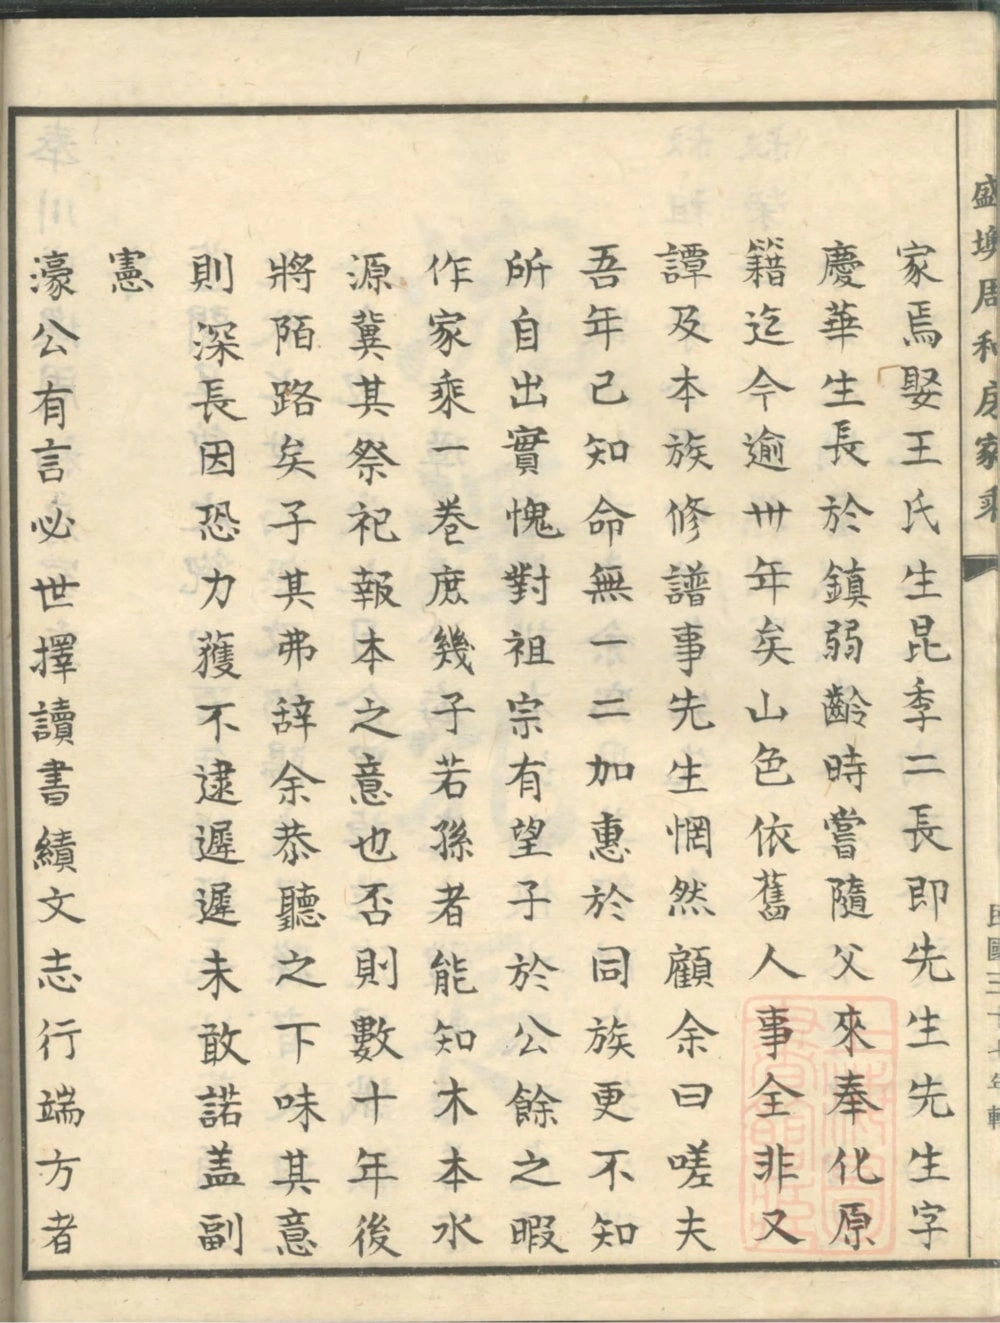 盛塊周和房家乘
民國三十七年輯
家焉娶王氏生昆季二長即先生先生字
慶華生長於鎮弱齡時嘗隨父來奉化原
籍迄今逾卅年矣山色依舊人事全非又
譚及本族修譜事先生惘然顧余曰嗟夫
吾年已知命無一二加惠於同族更不知
所自出實愧對祖宗有望子於公餘之暇
作家乘一卷庶幾子若孫者能知木本水
源冀其祭祀報本之意也否則數十年後
將陌路矣子其弗辞余恭聽之下味其意
則深長因恐力蒦不逮遲遲未敢諾盖副
憲
濠公有言必世擇讀書績文志行端方者